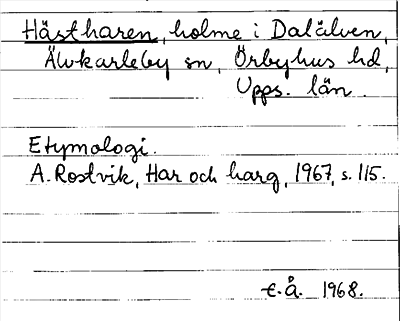 Hästharen, holme i Dalälven,
Älvkarleby sn, Örbyhus hd,
Upps. län.
Etymologi.
A. Rostvik, Har och harg, 1967, s. 115.
E.Å. 1968.